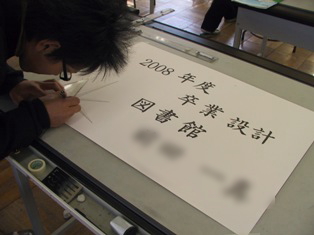 2008年度
卒業設計
図書館